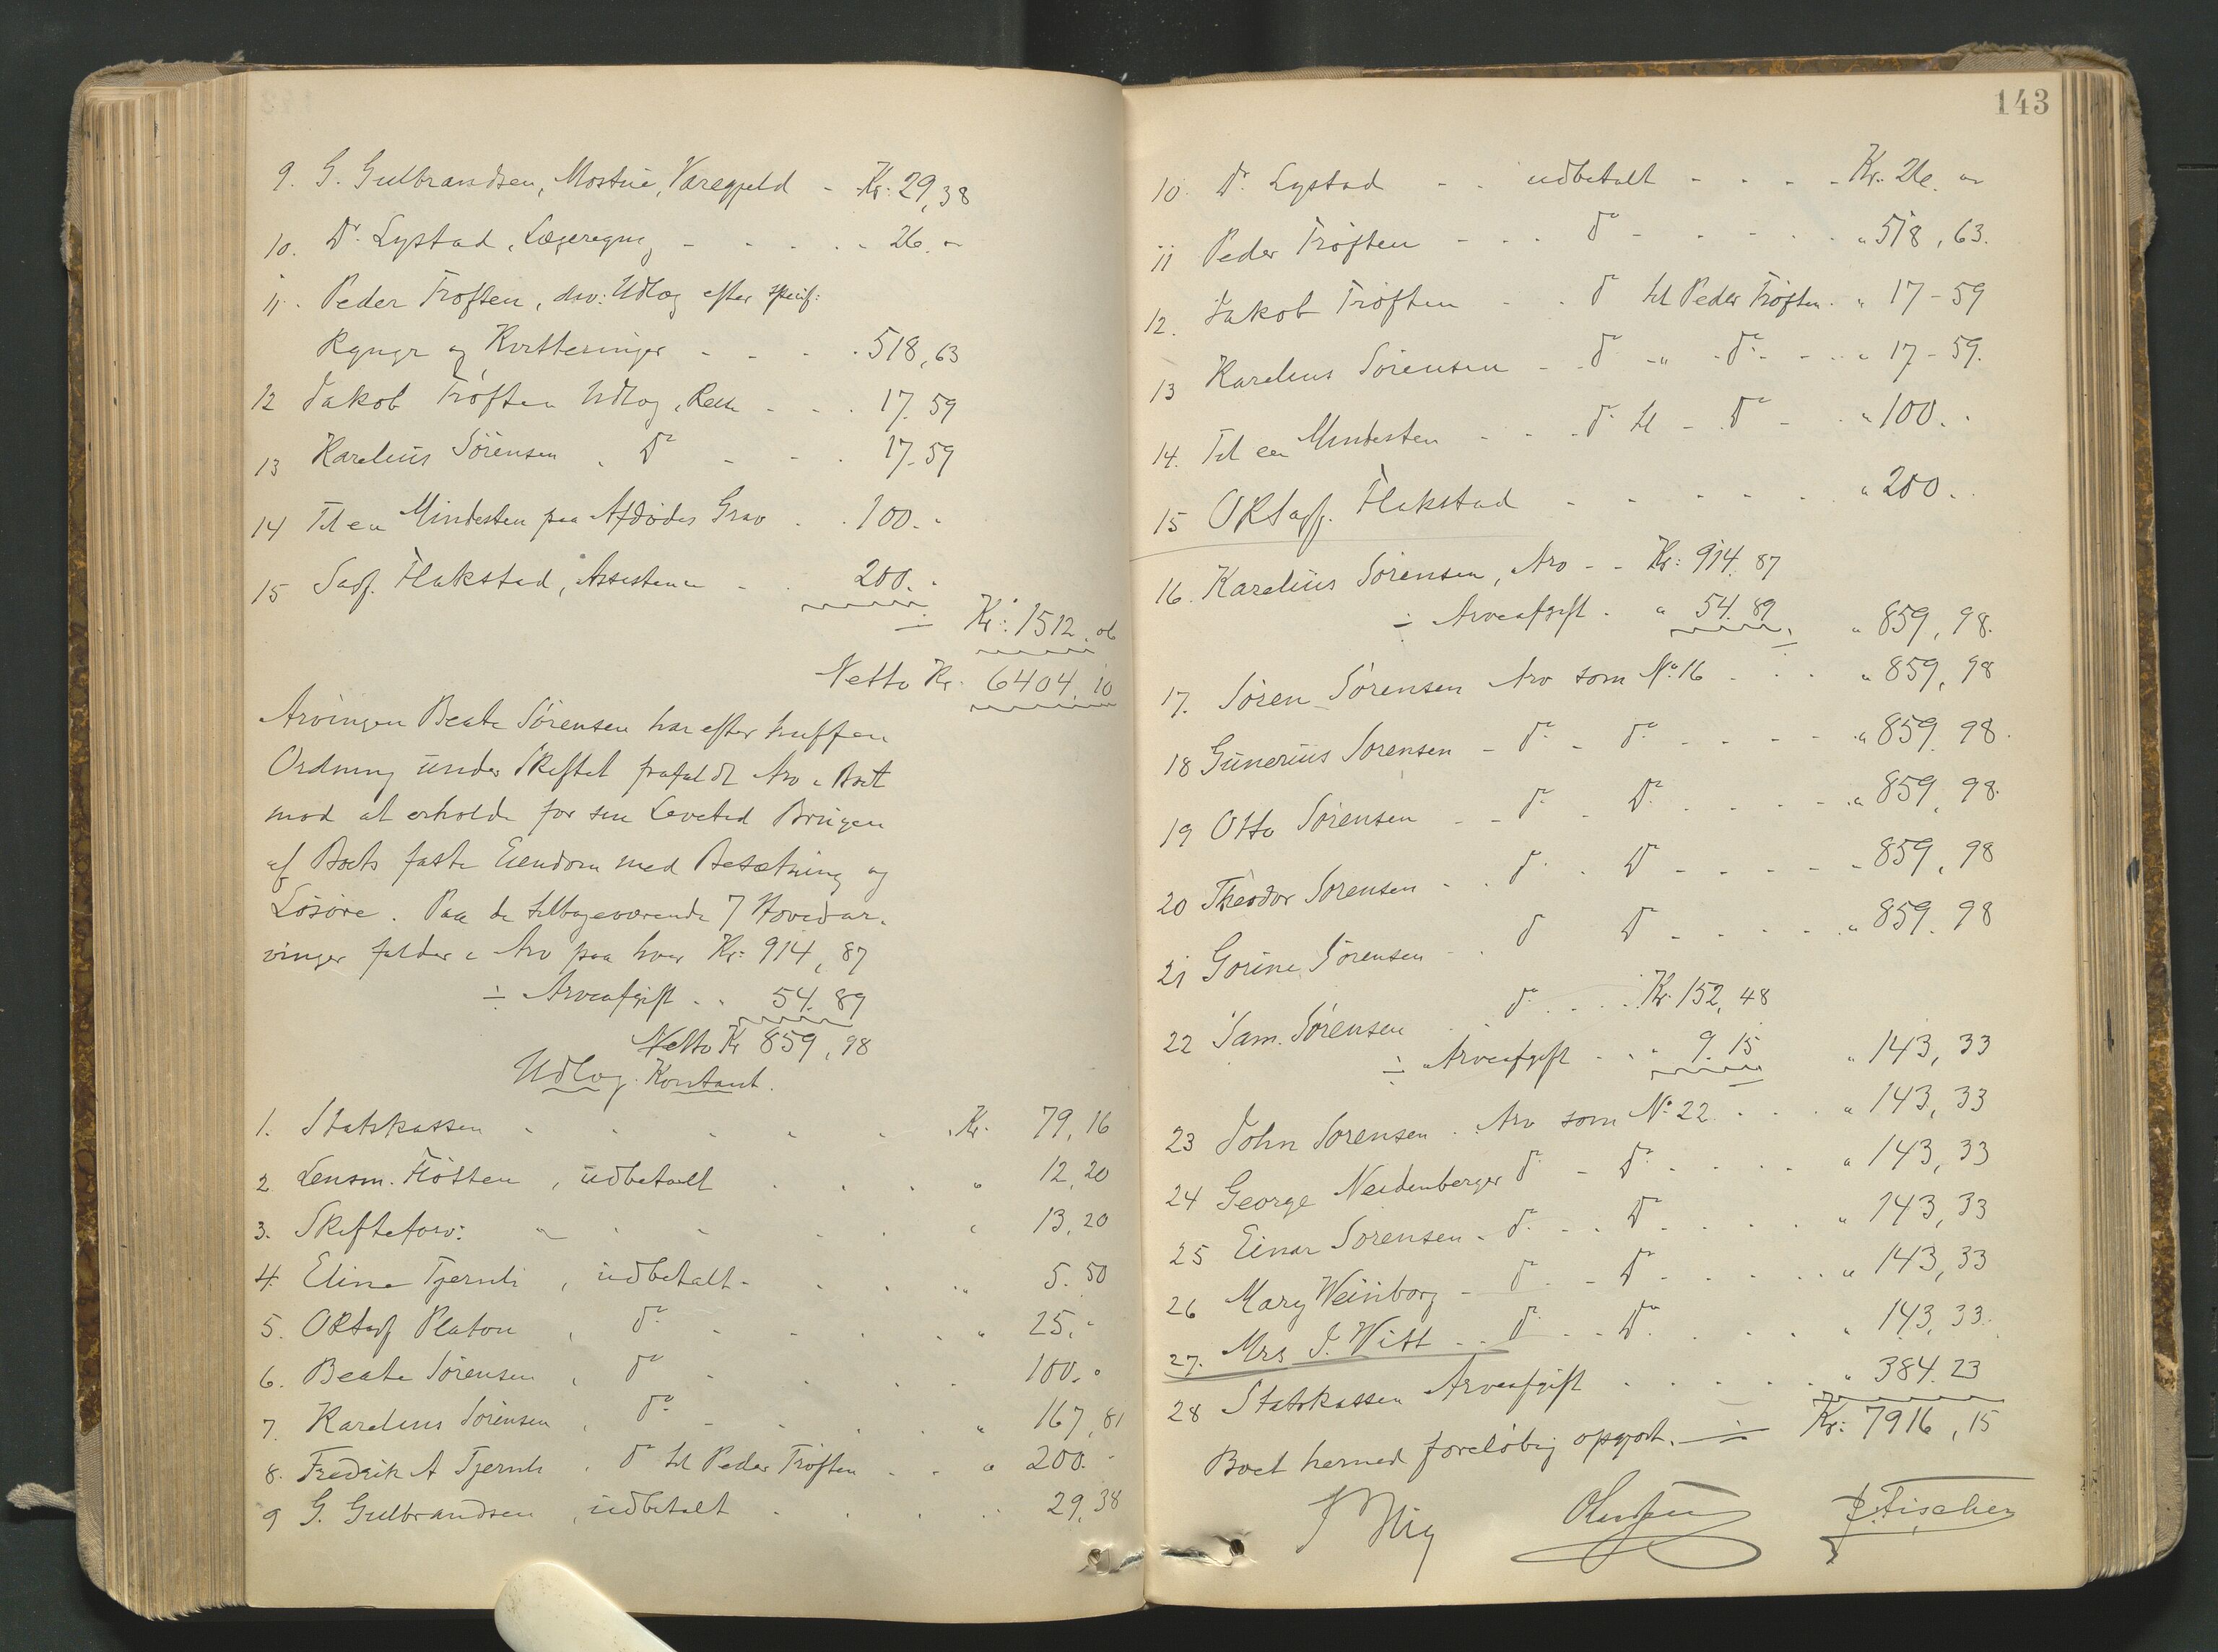 9. G. Gulbrandsen, Mostue, Varegjeld - Kr: 29,38
10. Dr. Lystad, Lægeregng - - - - - 26. "
11. Peder Trøften, div: Udlæg efter specif:
Rgngr og Kvitteringer - - - . 518,63
12 Jakob Trøften Udlæg, Reise - - . 17.59
13 Karelius Sørensen " Do - - . 17.59
14 Til en Mindesten paa Afdødes Grav . . 100. "
15 Sagf. Flakstad, Assistance - . 200. "
÷ Kr: 1512.06
Netto Kr. 6404.10
Arvingen Beate Sørensen har efter truffen
Ordning under Skiftet frafaldt Arv i Boet
mod at erholde for sin Levetid Brugen
af Boets faste Eiendom med Besætning og
Løsøre. Paa de tilbageværende 7 Hovedar-
vinger falder i Arv paa hver Kr: 914,87
÷ Arveafgift . . 54.89
Netto Kr 859,98
Udlæg. Kontant.
1. Statskassen - - - - - . Kr. 79,16
2 Lensm. Fløtten, udbetalt . . . " 12,20
3. Skifteforv: " - - . . " 13,20
4. Eline Tjernli, udbetalt - . . . " 5.50
5. ORtssf Platou , do - - . . " 25. "
6. Beate Sørensen , do - - . . 100. "
7. Karelius Sørensen , do - . . . " 167,81
8. Fredrik A Tjernli . do til Peder Trøften - . " 200. "
9 G. Gulbrandsen , udbetalt . . . . 29,38
143
10. Dr. Lystad - - udbetalt - - - - Kr. 26. "
11 Peder Trøften - - - do - - - - - " 518,63.
12. Jakob Trøften - - do til Peder Trøften . " 17-59
13 Karelius Sørensen - - do - " - do - - - " 17-59.
14. Til en Mindesten - - - do til - Do - . " 100. "
15 ORtssf. Flakstad - - - - - . " 200. "
16. Karelius Sørensen, Arv - - Kr: 914.87
÷ Arveafgift . " 54.89 " 859,98.
17. Søren Sørensen Arv som No 16 . . . " 859,98
18 Gunerius Sørensen - do - do - - - - " 859.98.
19 Otto Sørensen - - do - Do . . - - " 859,98.
20 Theodor Sørensen - . do . Do - - - - - 859,98
21 Gorine Sørensen - . do Do - - - . . " 859.98
22 Sam. Sørensen . do . . . . Kr. 152,48
÷ Arveafgift . . " 9.15 " 143,33
23 John Sørensen . Arv som No 22 . . . " 143,33
24 George Neidenberger do - do . . . . " 143,33
25 Einar Sørensen - do - . Do . . . . " 143,33
26 Mary Weinborg - do - - Do - . . . . " 143,33
27. Mrs J. Witt - - do - - Do . . . . " 143,33.
28 Statskassen Arveafgift . . . . . " 384.23
Kr: 7916,15
Boet hermed foreløbig opgjort. ÷
P. Fischer